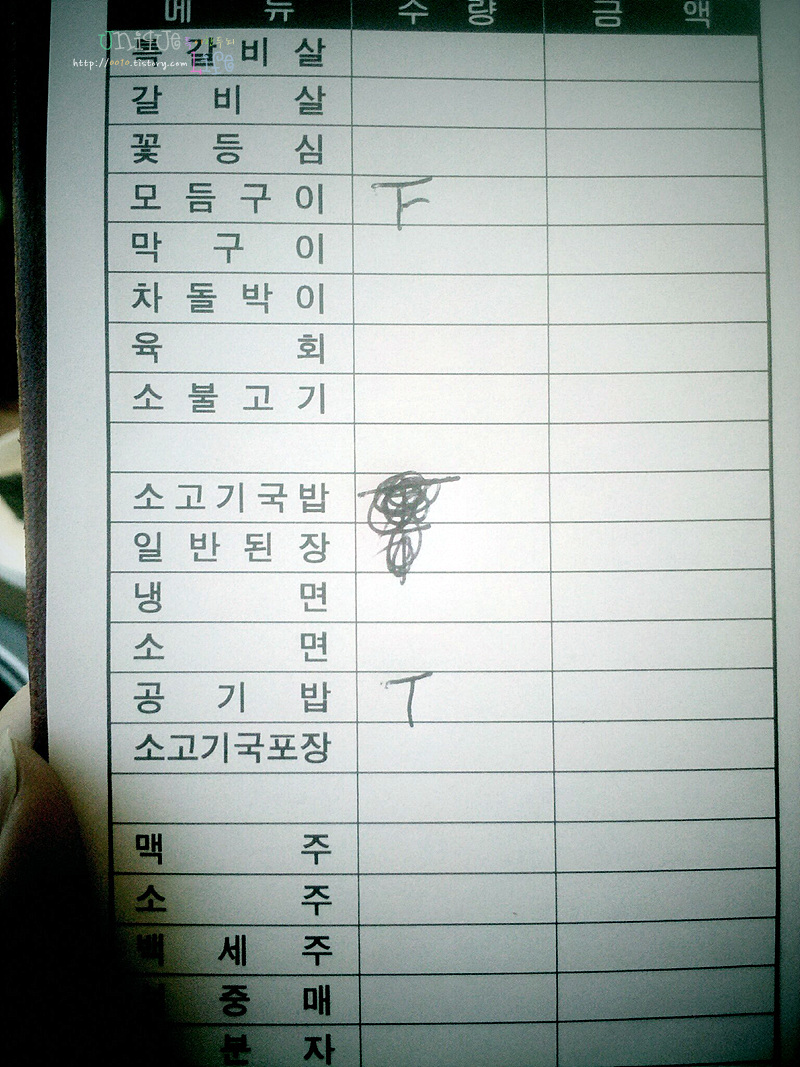 메 뉴 수 량 금 액
unique
Life
http://0010.tistory.com
갈 비 살
갈 비 살
꽃 등 심
모 듬 구 이 F
막 구 이
차 돌 박 이
육 회
소 불 고 기
소 고 기 국 밥
일 반 된 장
냉 면
소 면
공 기 밥 T
소고기국포장
맥 주
소 주
백 세 주
중 매
분 자